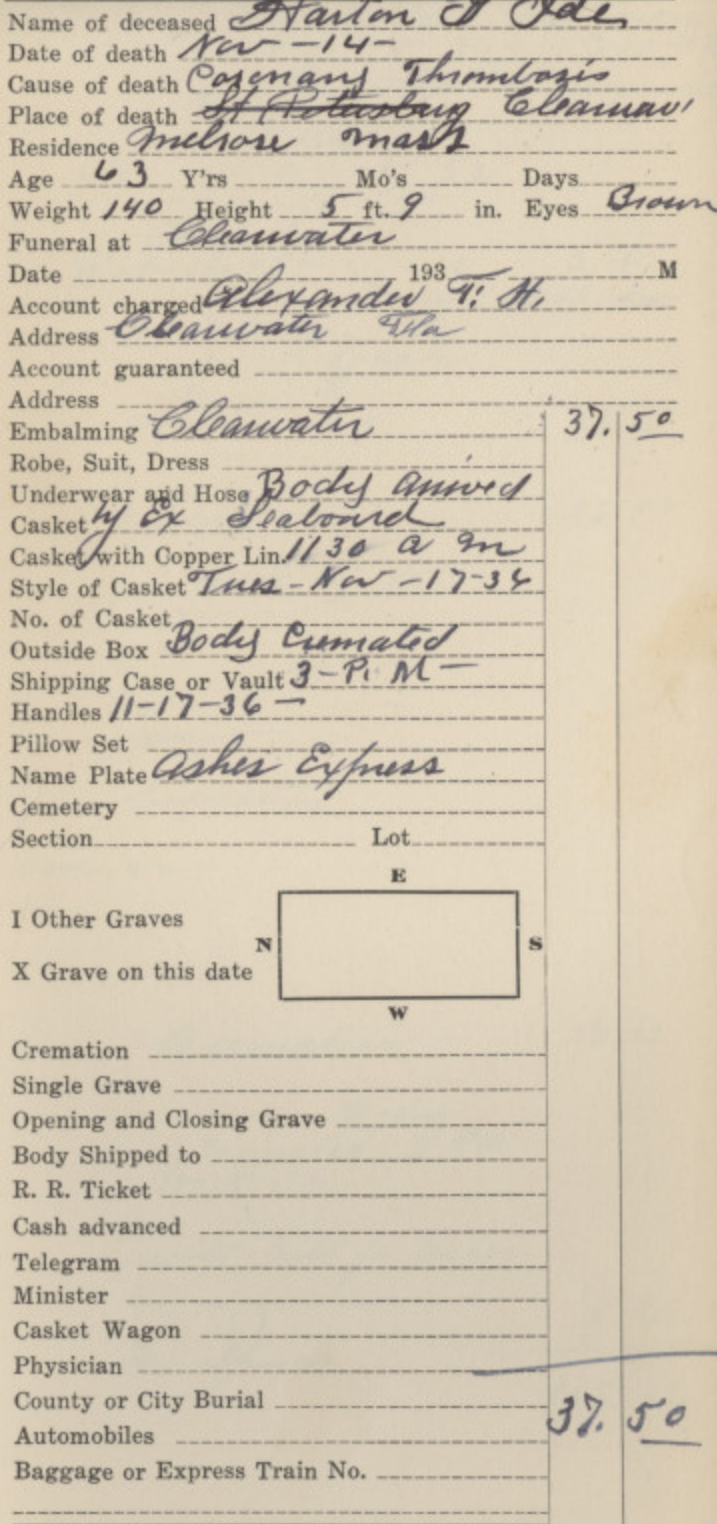 Name of deceased Harlon P Ide
Date of death Nov -14-
Cause of death Coronary Thrombosis
Place of death St Petersburg Clearwa
Residence Melrose Mass
Age 63 Y'rs Mo's Days
Weight 140 Height 5 ft. 9 in. Eyes Brown
Funeral at Clearwater
Date 193 M
Account charged Alexander F. H.
Address Clearwater Fla
Account guaranteed
Address
Embalming Clearwater 37. 50
Robe, Suit, Dress
Underwear and Hose Body arrived
Casket Ex Seaboard
Casket with Copper Lin. 1130 a m
Style of Casket Tues - Nov -17-36
No. of Casket
Outside Box Body Cremated
Shipping Case or Vault 3-P. M-
Handles 11-17-36 -
Pillow Set
Name Plate Ashes Express
Cemetery
Section Lot
E
I Other Graves
N S
X Grave on this date
W
Cremation
Single Grave
Opening and Closing Grave
Body Shipped to
R. R. Ticket
Cash advanced
Telegram
Minister
Casket Wagon
Physician
County or City Burial 37. 50
Automobiles
Baggage or Express Train No.